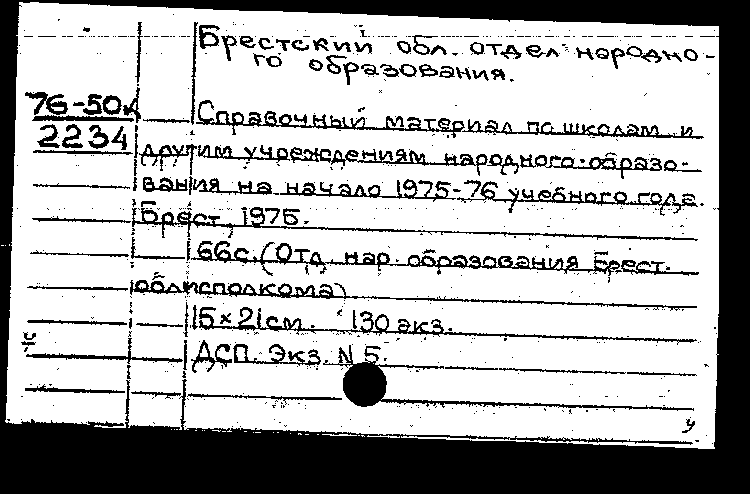 Брестский обл. отдел народно-
го образования.
76-50к
2234
Справочный материал по школам и
другим учреждениям народного образо-
вания на начало 1975-76 учебного года.
Брест, 1975.
66с. (Отд. нар. образования Брест.
облисполкома)
15×21см. 130 экз.
ДСП. Экз. N 5.
у